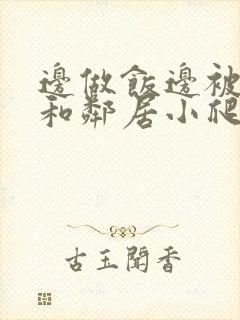 邊做飯邊被
和鄰居小爬
古玉聞香